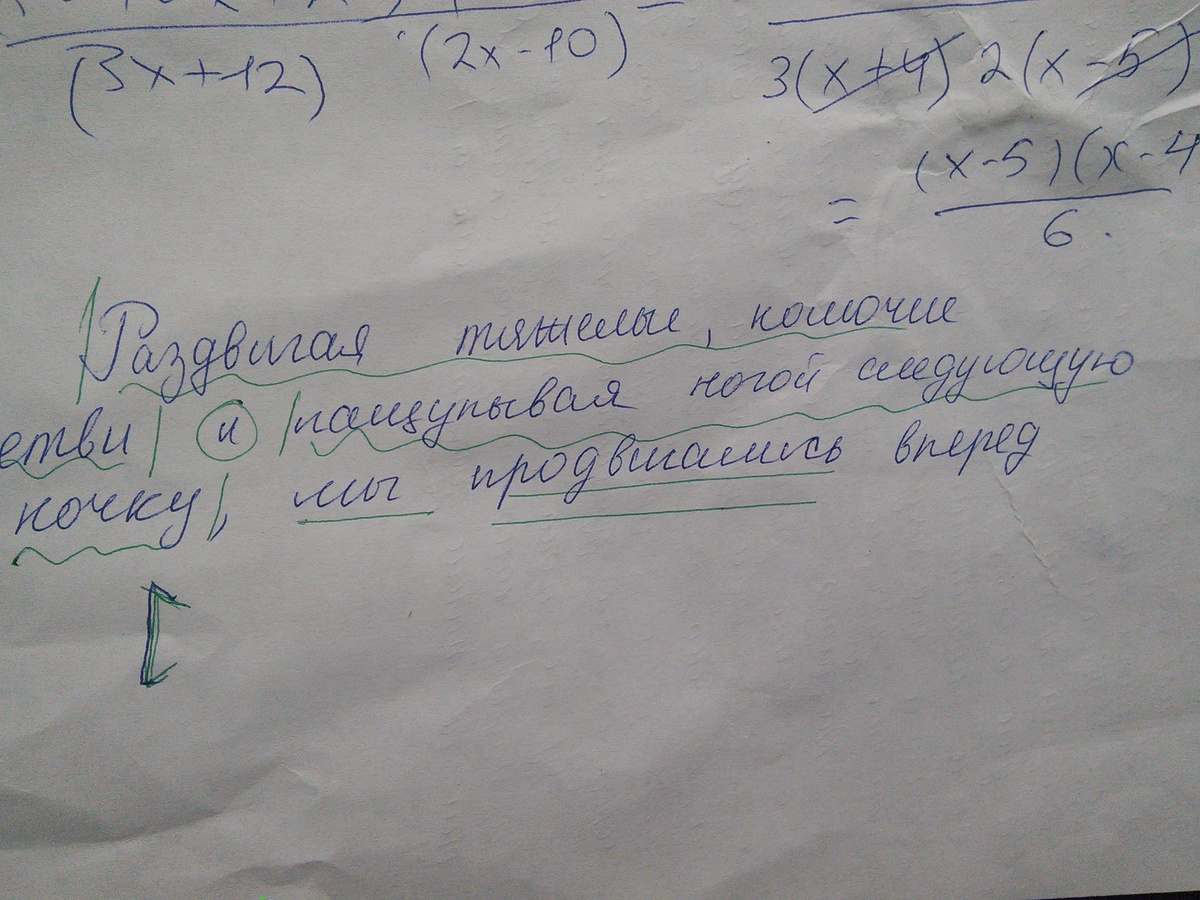 (3x+12) · (2x-10) =
3(x+4) 2(x-5)
= (x-5)(x-4
6.
Раздвигая тяжелые, колючие
етви и нащупывая ногой следующую
кочку, мы продвигались вперед